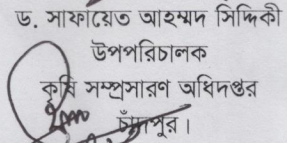 ড. সাফায়েত আহম্মদ সিদ্দিকী
উপপরিচালক
কৃষি সম্প্রসারণ অধিদপ্তর
চাঁদপুর।